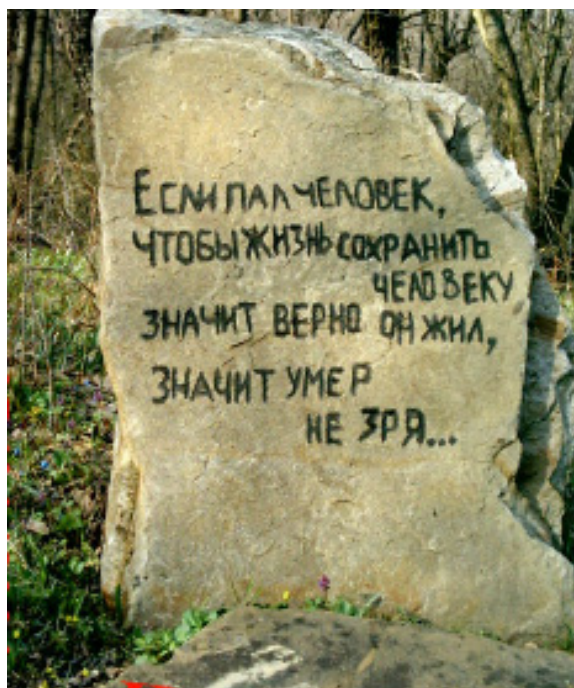 Если пал человек,
чтобы жизнь сохранить
человеку
значит верно он жил,
значит умер
не зря...